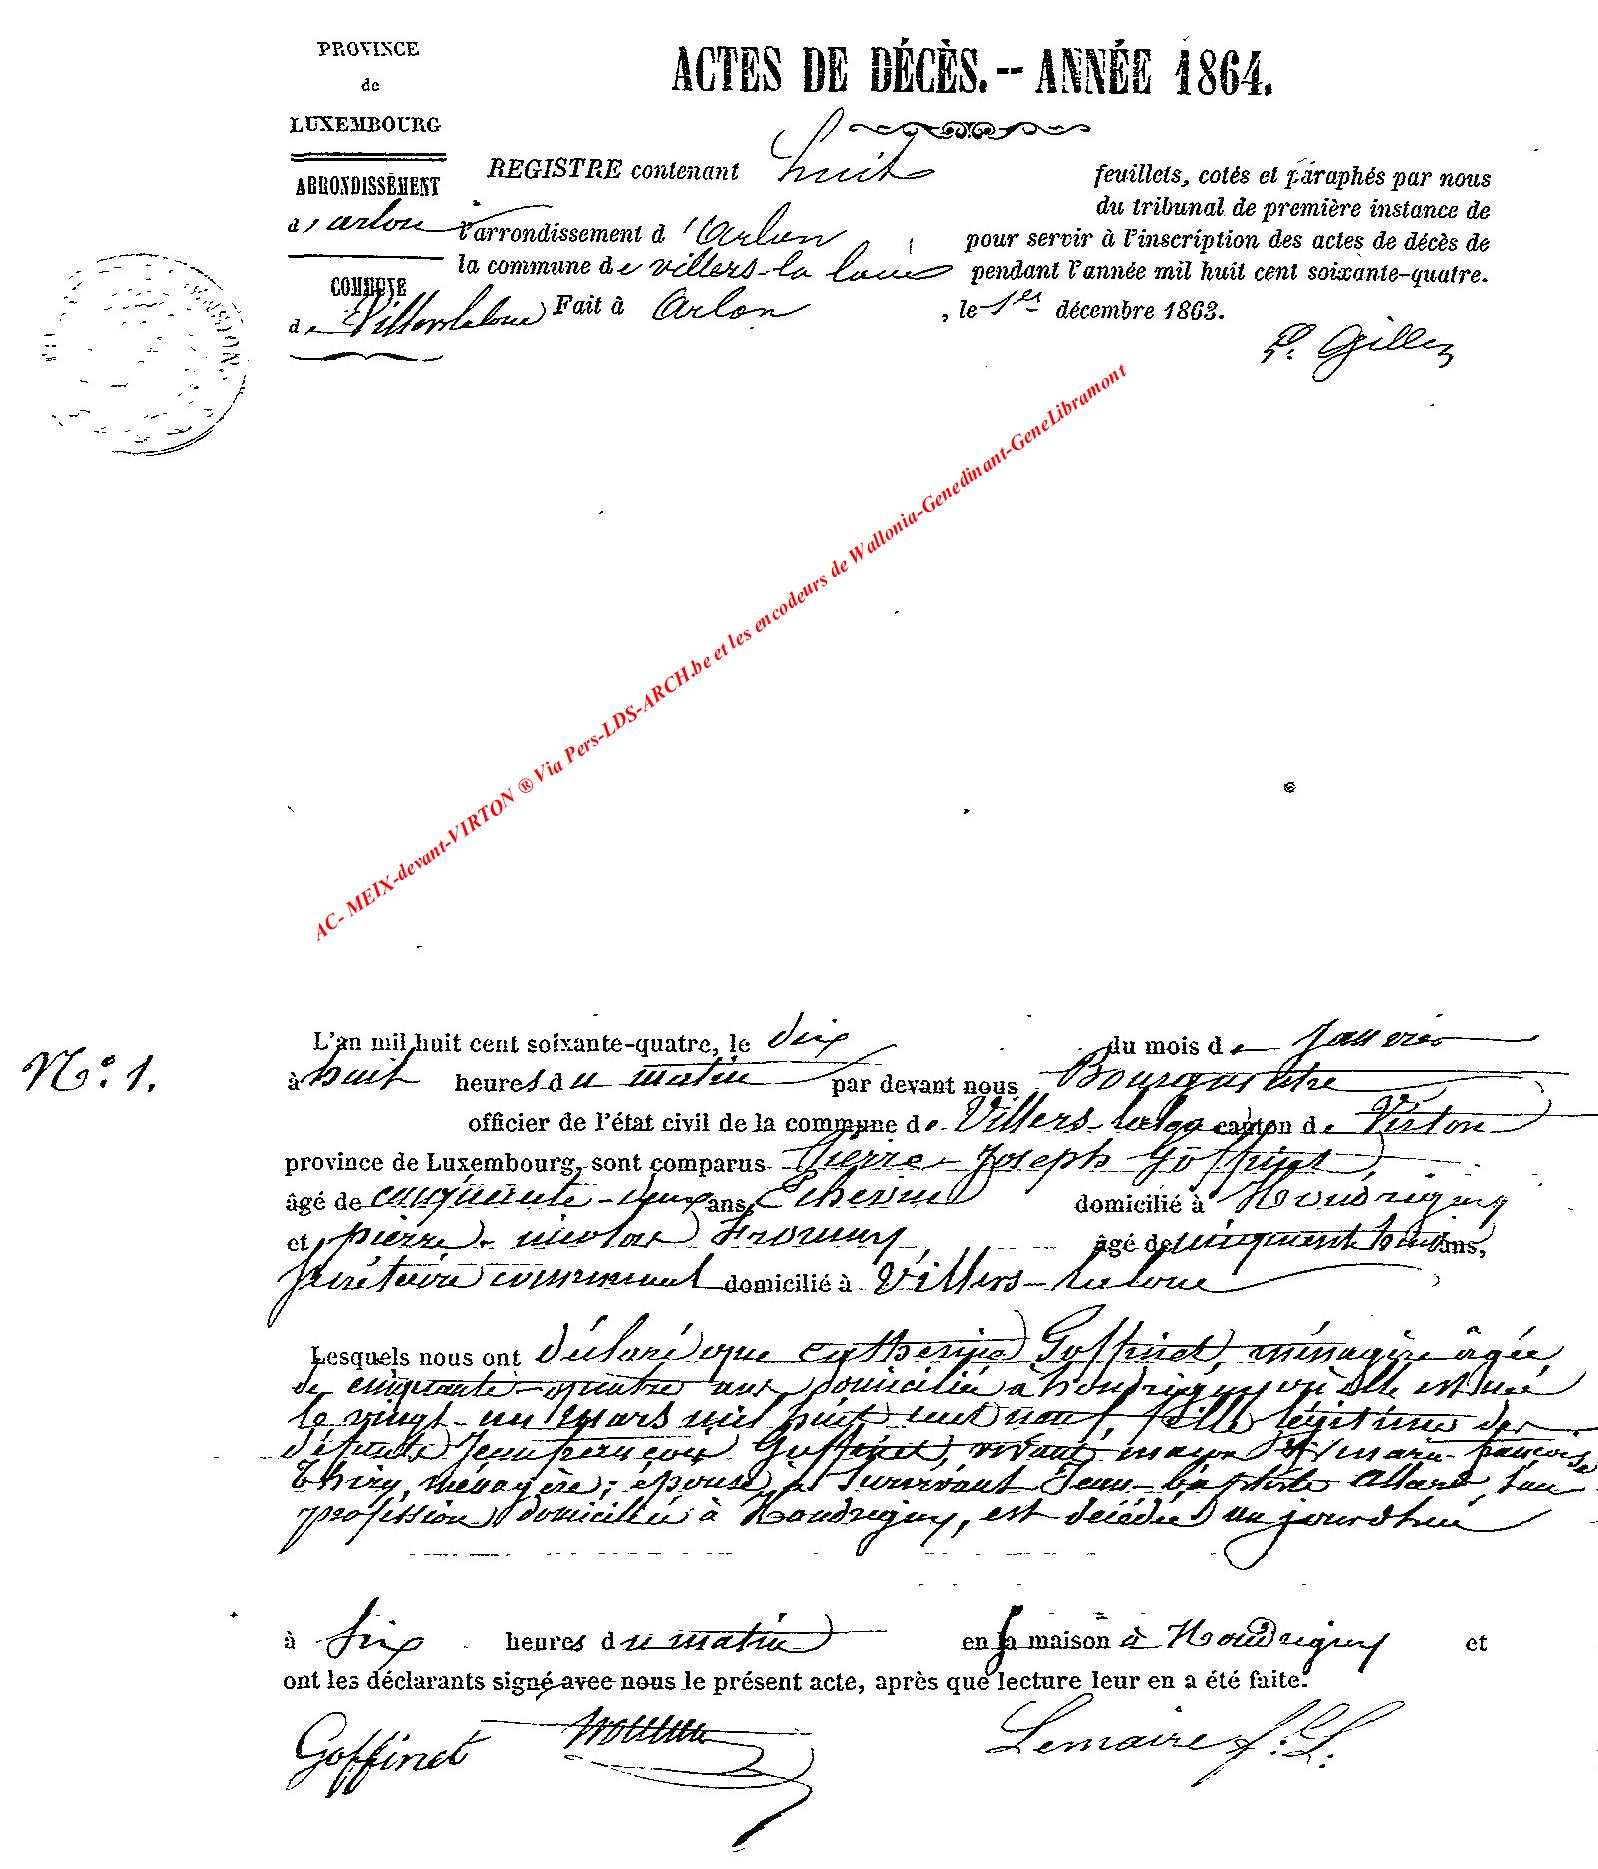 PROVINCE
de
LUXEMBOURG
ARRONDISSEMENT
d'arlon
COMMUNE
de Villerslaloue
ACTES DE DÉCÈS.-- ANNÉE 1864.
REGISTRE contenant huit feuillets, cotés et paraphés par nous
du tribunal de première instance de
l'arrondissement d'Arlon pour servir à l'inscription des actes de décès de
la commune de villers-la loue pendant l'année mil huit cent soixante-quatre.
Fait à Arlon, le 1er décembre 1863.
AC- MEIX-devant-VIRTON ® Via Pers-LDS-ARCH.be et les encodeurs de Wallonia-Genedinant-GeneLibramont
N° 1.
L'an mil huit cent soixante-quatre, le dix du mois de Janvier
à huit heures du matin par devant nous Bourgmestre
officier de l'état civil de la commune de Villers-laloue canton de Virton
province de Luxembourg, sont comparus Pierre-Joseph Goffinet,
âgé de cinquante-deux ans, Echevin domicilié à Houdrigny
et pierre-nicolas âgé de cinquante huit ans,
secrétaire communal domicilié à Villers-laloue
Lesquels nous ont déclaré que catherine Goffinet, ménagère âgée
de cinquante-quatre ans domiciliée à houdrigny où elle est née
le vingt-un mars mil huit cent neuf, fille légitime des
défunts Jean françois Goffinet, vivant maçon et marie-françoise
Thiry, ménagère; épouse Survivant Jean-baptiste Allard, sans
profession domicilié à Houdrigny, est décédée aujourd'hui
à six heures du matin en sa maison à Houdrigny et
ont les déclarants signé avec nous le présent acte, après que lecture leur en a été faite.
Goffinet Lemaire f.L.